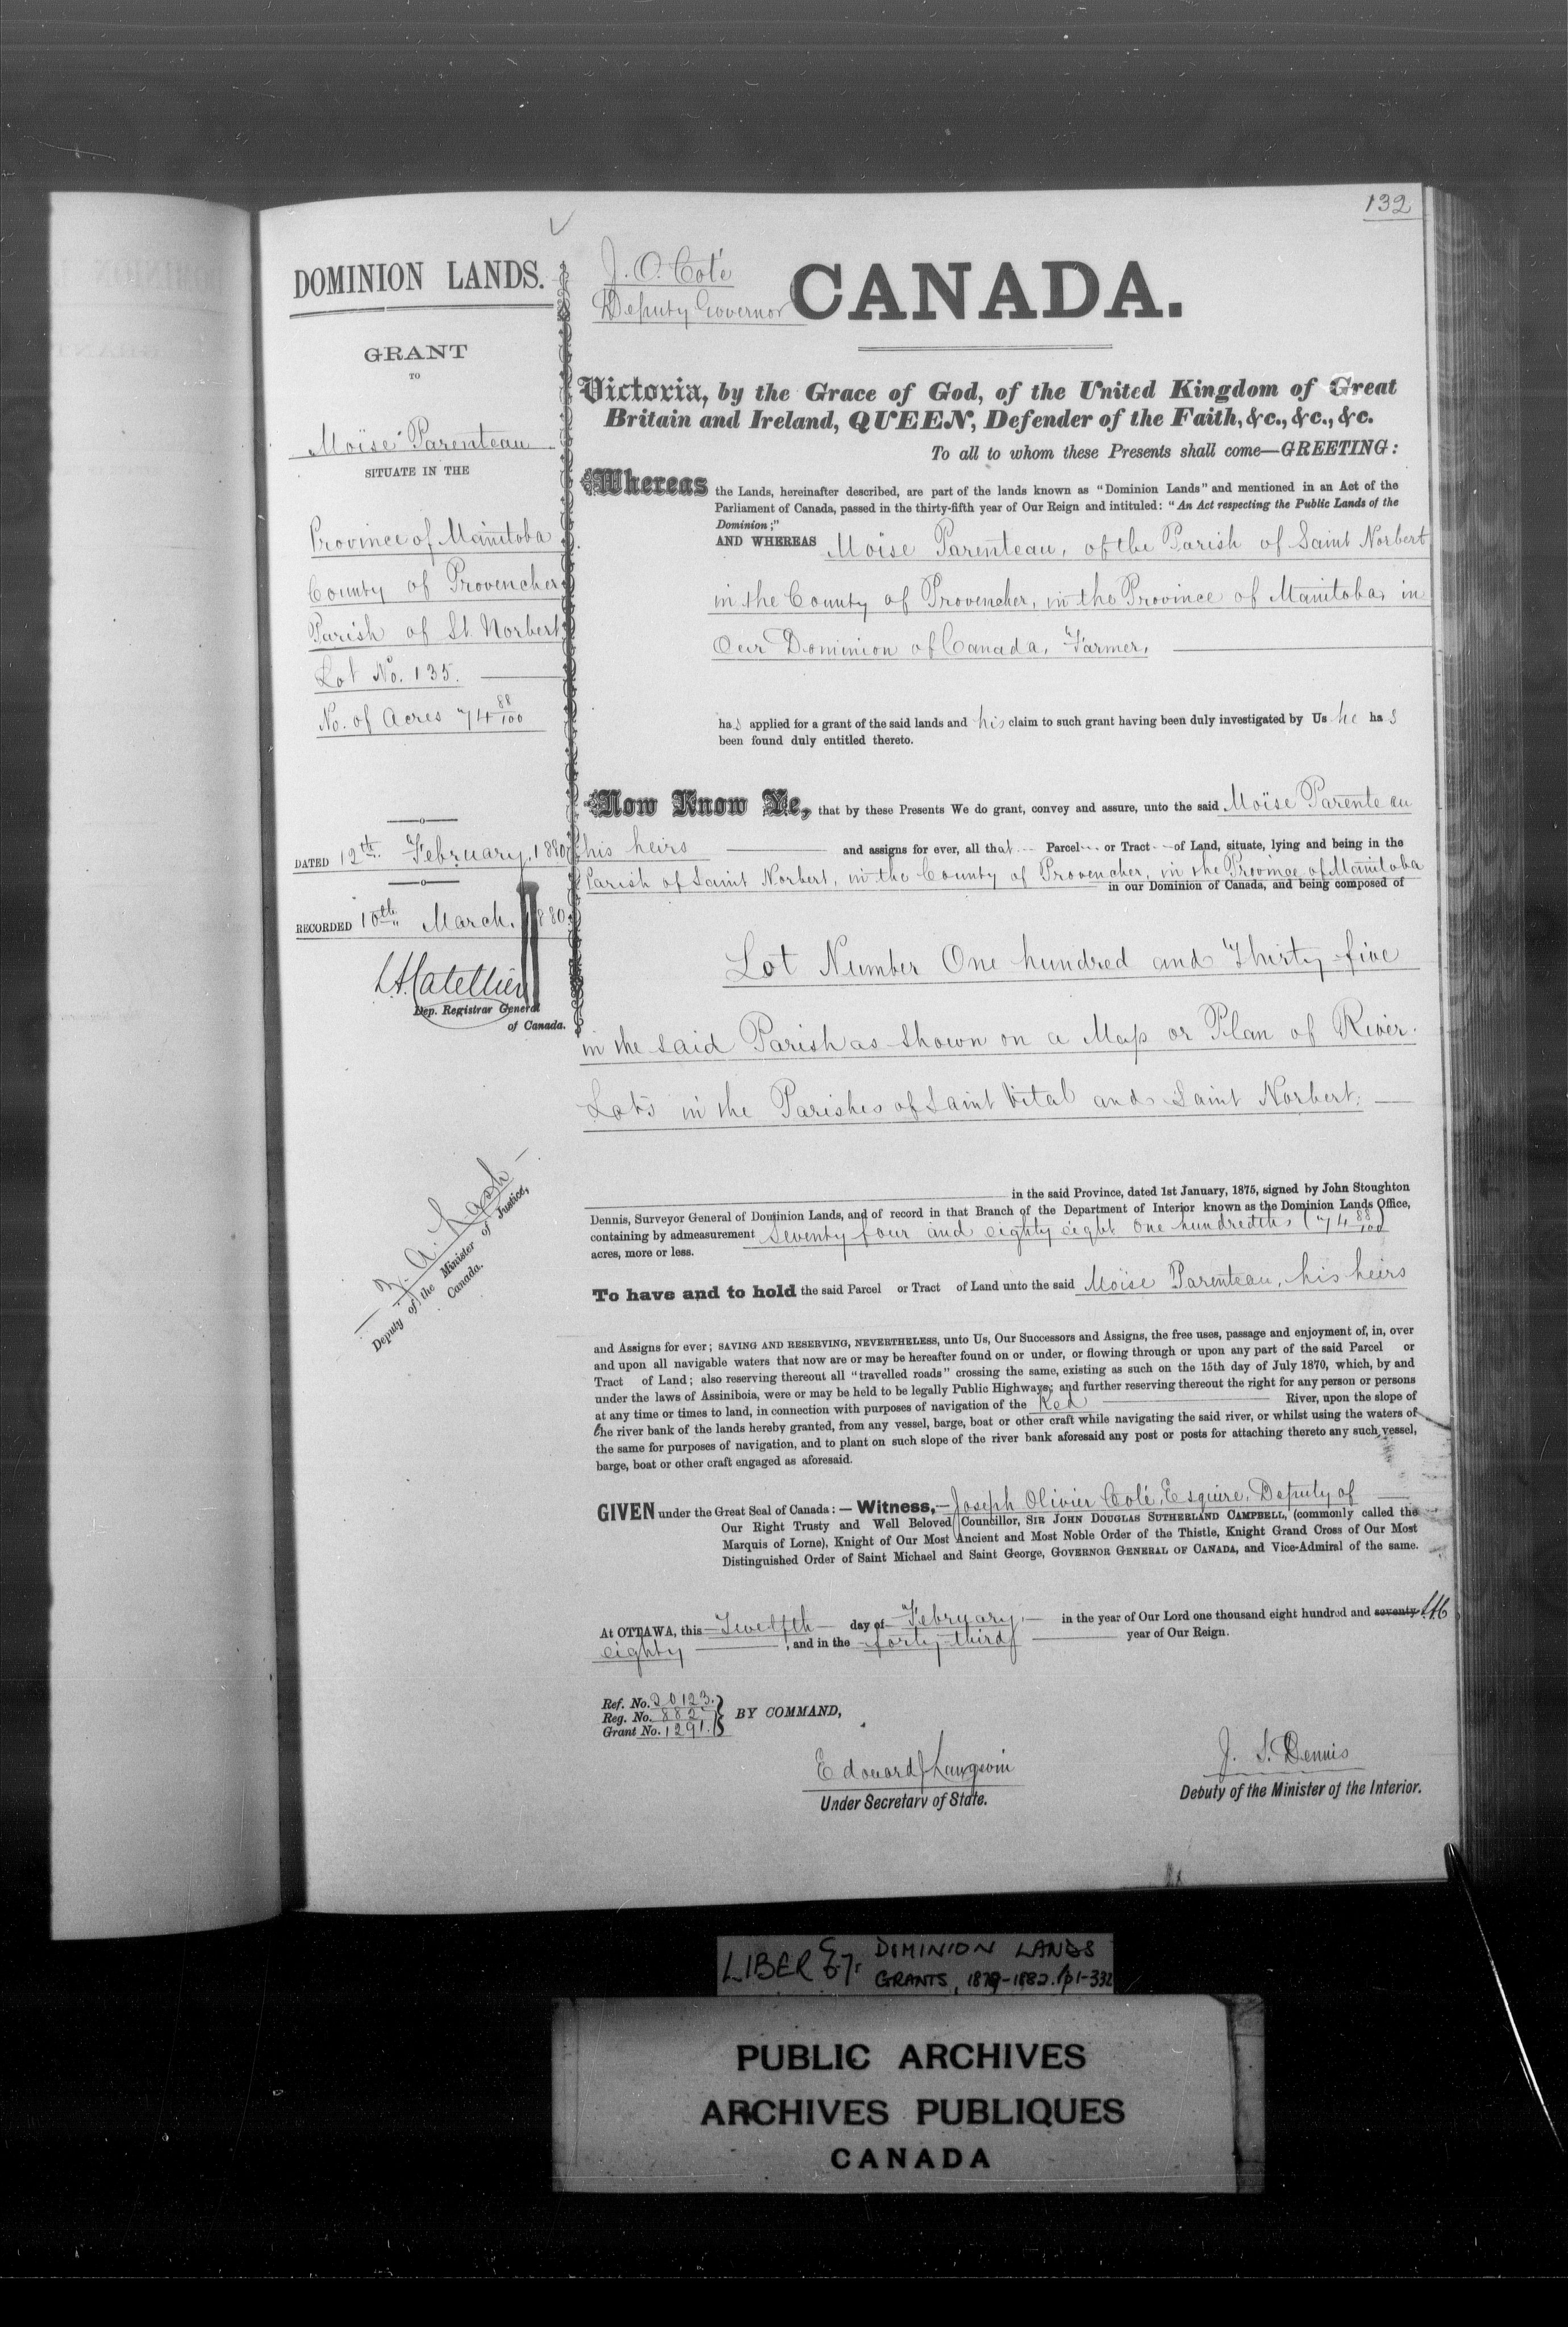 132
DOMINION LANDS.
GRANT
TO
Moïse Parenteau
SITUATE IN THE
Province of Manitoba
County of Provencher
Parish of St. Norbert
Lot No. 135.
No. of Acres 74 88/100
DATED 12th. February, 1880
RECORDED 10th March, 1880
Dep. Registrar General
of Canada.
Z. A. Lash
Deputy of the Minister of Justice,
Canada.
J. O. Coté
Deputy Governor
CANADA.
Victoria, by the Grace of God, of the United Kingdom of Great
Britain and Ireland, QUEEN, Defender of the Faith, &c., &c., &c.
To all to whom these Presents shall come—GREETING:
Whereas the Lands, hereinafter described, are part of the lands known as "Dominion Lands" and mentioned in an Act of the
Parliament of Canada, passed in the thirty-fifth year of Our Reign and intituled: "An Act respecting the Public Lands of the
Dominion;"
AND WHEREAS Moïse Parenteau, of the Parish of Saint Norbert
in the County of Provencher, in the Province of Manitoba, in
Our Dominion of Canada, Farmer,
has applied for a grant of the said lands and his claim to such grant having been duly investigated by Us he has
been found duly entitled thereto.
Now Know Ye, that by these Presents We do grant, convey and assure, unto the said Moïse Parenteau
his heirs and assigns for ever, all that Parcel or Tract of Land, situate, lying and being in the
Parish of Saint Norbert, in the County of Provencher, in the Province of Manitoba
in our Dominion of Canada, and being composed of
Lot Number One hundred and Thirty-five
in the said Parish as shown on a Map or Plan of River
Lots in the Parishes of Saint Vital and Saint Norbert.
in the said Province, dated 1st January, 1875, signed by John Stoughton
Dennis, Surveyor General of Dominion Lands, and of record in that Branch of the Department of Interior known as the Dominion Lands Office,
containing by admeasurement Seventy four and eighty eight one hundredths (74 88/100)
acres, more or less.
To have and to hold the said Parcel or Tract of Land unto the said Moïse Parenteau, his heirs
and Assigns for ever; SAVING AND RESERVING, NEVERTHELESS, unto Us, Our Successors and Assigns, the free uses, passage and enjoyment of, in, over
and upon all navigable waters that now are or may be hereafter found on or under, or flowing through or upon any part of the said Parcel or
Tract of Land; also reserving thereout all "travelled roads" crossing the same, existing as such on the 15th day of July 1870, which, by and
under the laws of Assiniboia, were or may be held to be legally Public Highways; and further reserving thereout the right for any person or persons
at any time or times to land, in connection with purposes of navigation of the Red River, upon the slope of
the river bank of the lands hereby granted, from any vessel, barge, boat or other craft while navigating the said river, or whilst using the waters of
the same for purposes of navigation, and to plant on such slope of the river bank aforesaid any post or posts for attaching thereto any such vessel,
barge, boat or other craft engaged as aforesaid.
GIVEN under the Great Seal of Canada: — Witness,—Joseph Olivier Coté, Esquire, Deputy of
Our Right Trusty and Well Beloved Councillor, SIR JOHN DOUGLAS SUTHERLAND CAMPBELL, (commonly called the
Marquis of Lorne), Knight of Our Most Ancient and Most Noble Order of the Thistle, Knight Grand Cross of Our Most
Distinguished Order of Saint Michael and Saint George, GOVERNOR GENERAL OF CANADA, and Vice-Admiral of the same.
At OTTAWA, this Twelfth day of February in the year of Our Lord one thousand eight hundred and seventy
eighty, and in the forty-third year of Our Reign.
Ref. No. 20123.
Reg. No. 882
Grant No. 1291.
BY COMMAND,
Edouard J Langevin
Under Secretary of State.
J. S. Dennis
Deputy of the Minister of the Interior.
LIBER DOMINION LANDS
GRANTS, 1879-1882. p1-332
PUBLIC ARCHIVES
ARCHIVES PUBLIQUES
CANADA